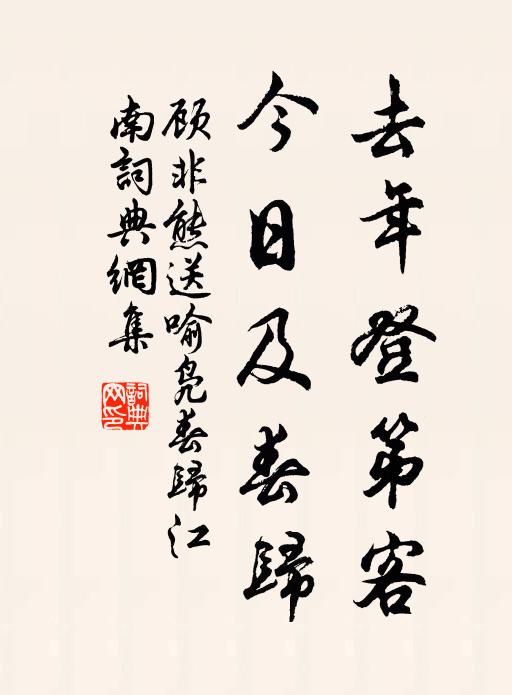 去年登第客
今日及春歸
顾非熊送喻凫春歸江
南詞典網集
詞典
网印